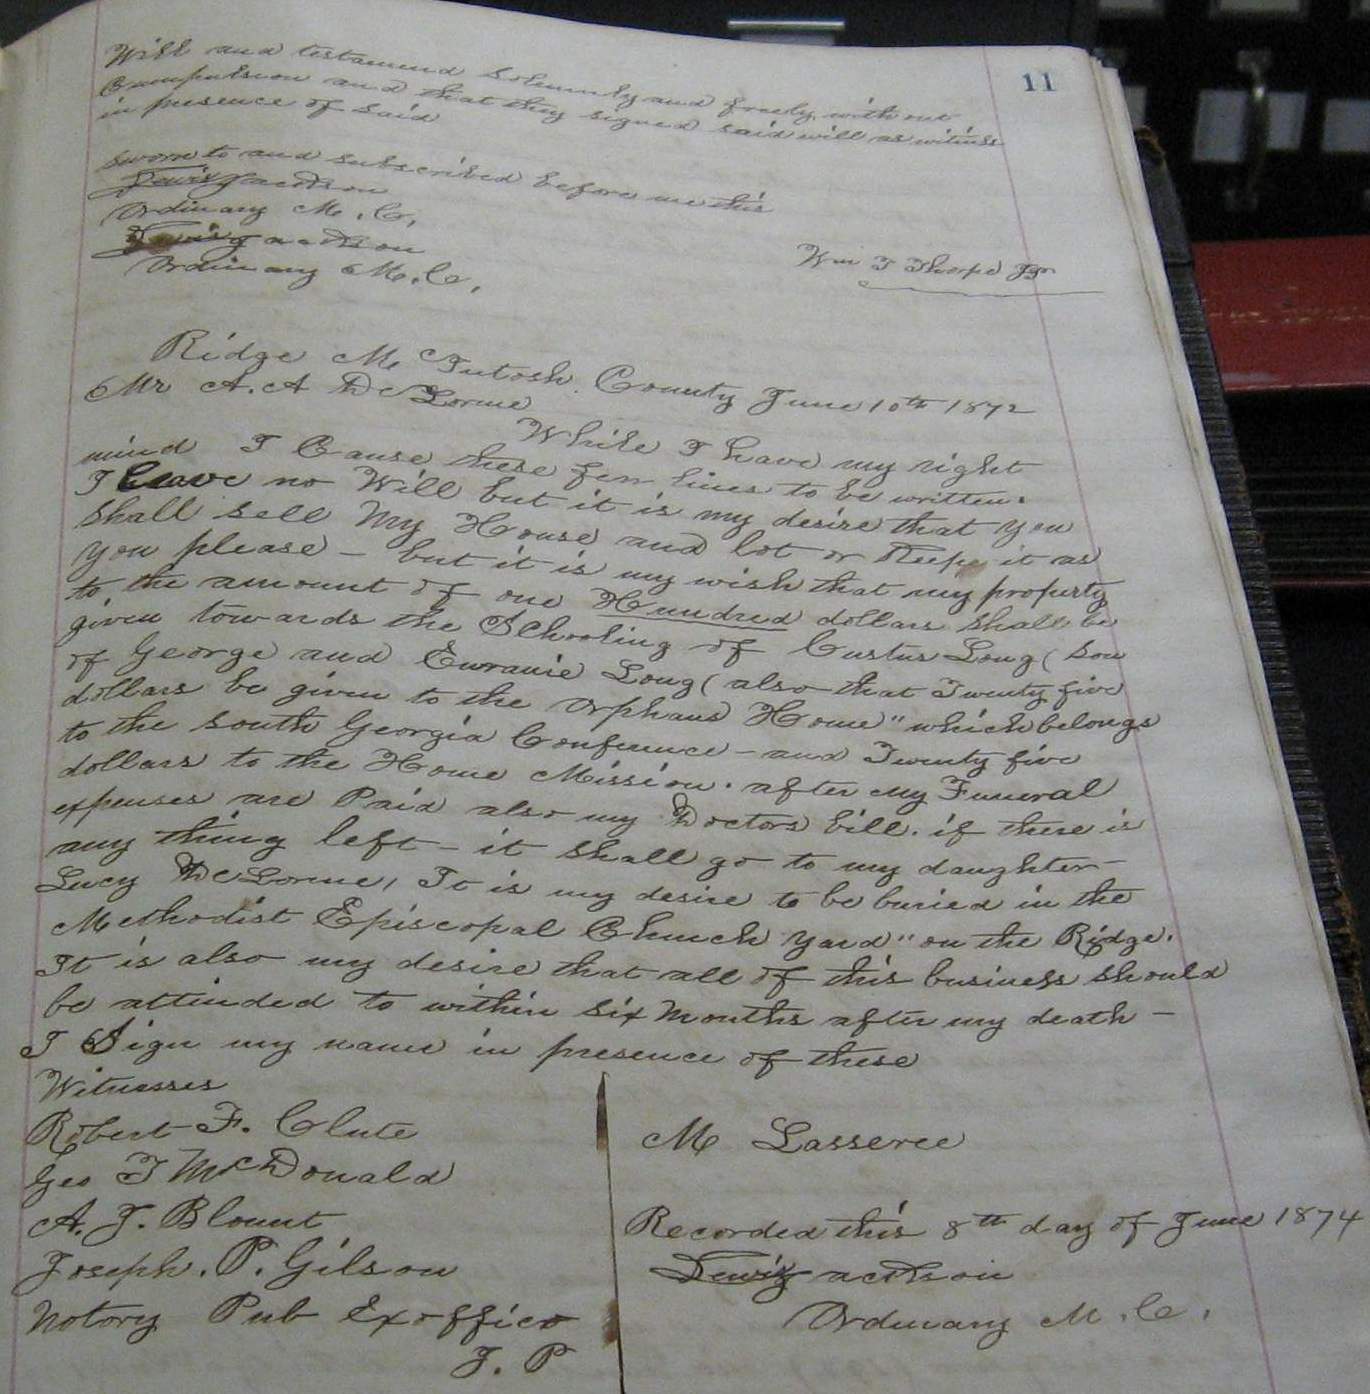 11
Will and testament solemnly and freely, without
Compulsion and that they signed said will as witness
in presence of said
Sworn to and subscribed before me this
Lewis Jackson
Ordinary M. C,
Lewis Jackson
Ordinary M. C,
Wm T Thorpe Jr
Ridge Mc Intosh. County June 10th 1872
Mr A. A De Lorme
While I have my right
mind I Cause these few lines to be written.
I leave no Will but it is my desire that you
Shall sell My House and lot or Keepe it as
you please - but it is my wish that my property
to the amount of one Hundred dollars shall be
given towards the Schooling of Custus Long ( son
of George and Euranie Long ( also that Twenty five
dollars be given to the Orphans Home" which belongs
to the South Georgia Conference - and Twenty five
dollars to the Home Mission. after my Funeral
expenses are Paid also my Doctors bill. if there is
any thing left - it shall go to my daughter
Lucy De Lorme, It is my desire to be buried in the
Methodist Episcopal Church yard" on the Ridge.
It is also my desire that all of this business should
be attinded to within six months after my death -
I Sign my name in presence of these
Witnesses
Robert F. Clute
Geo T McDonald
A. J. Blount
Joseph. P. Gilson
Notory Pub Exoffico
J. P
M Lasseree
Recorded this 8th day of June 1874
Lewis Jackson
Ordinary M. C.